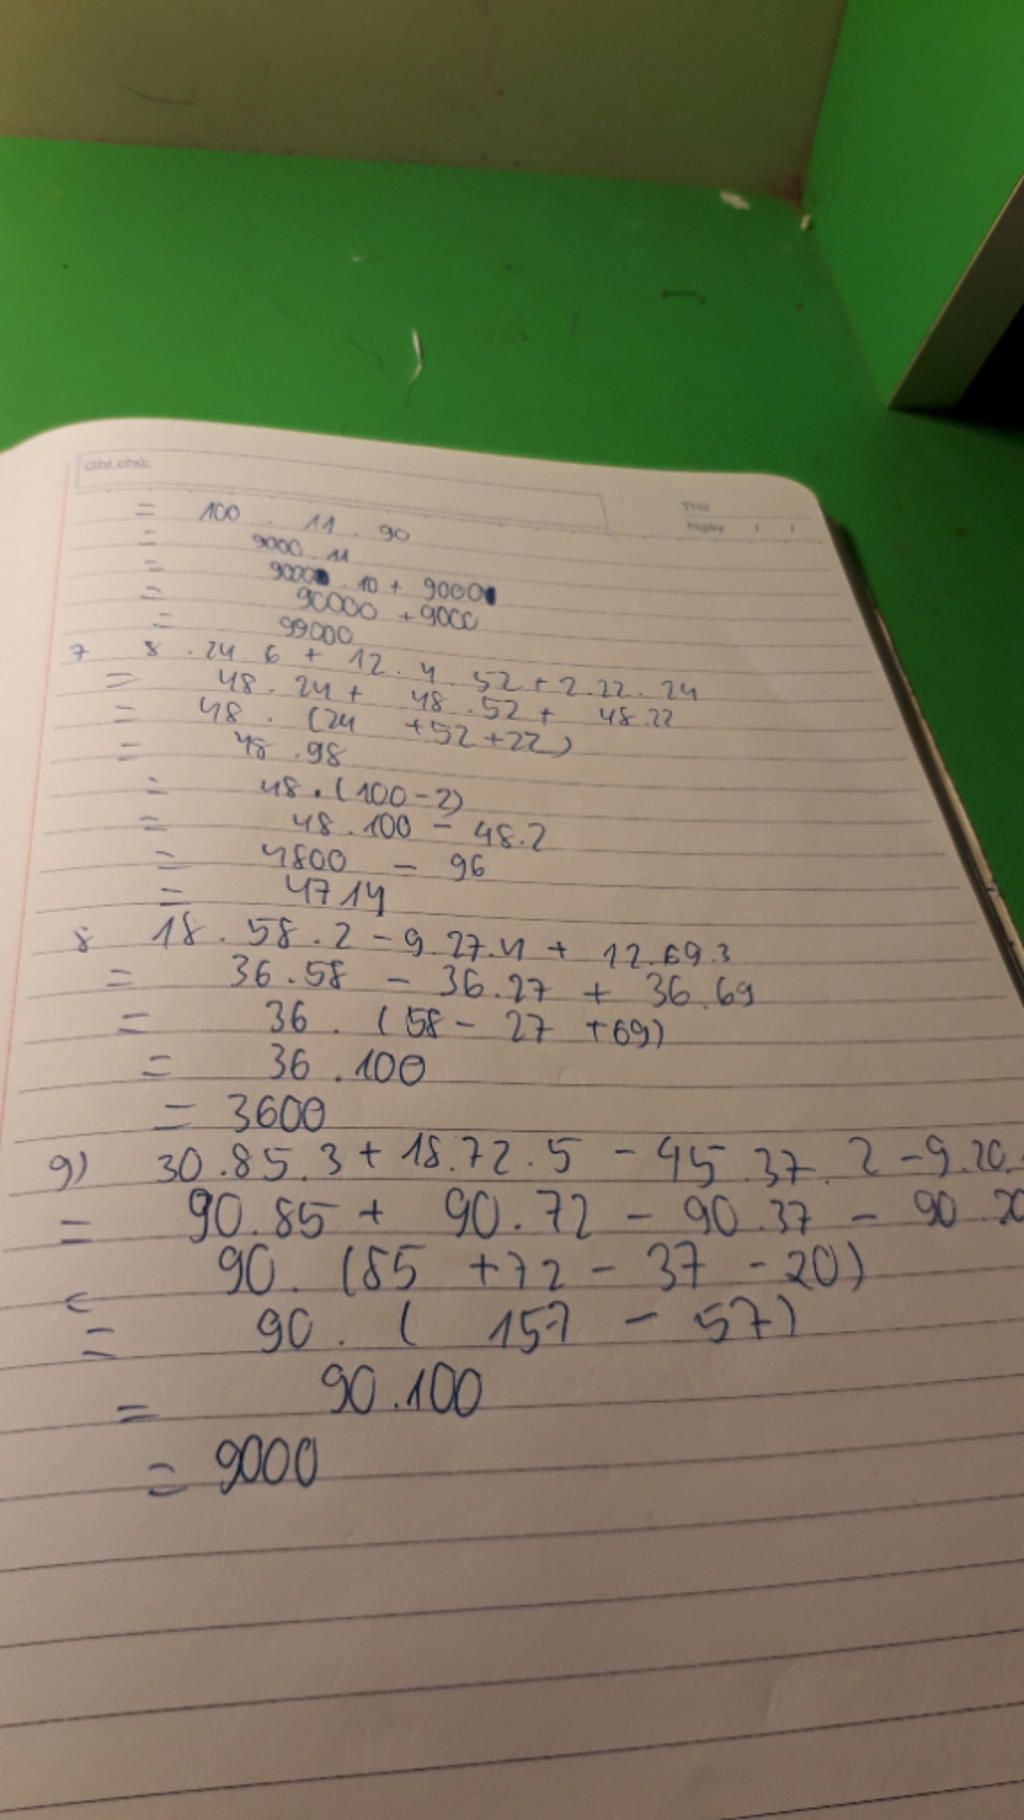 Ghi chú:
Thứ
Ngày / /
= 100 . 11 . 90
= 9000 . 11
= 9000 . 10 + 9000
= 90000 + 9000
= 99000
7 8 . 24 . 6 + 12 . 4 . 52 + 2 . 22 . 24
= 48 . 24 + 48 . 52 + 48 . 22
= 48 . (24 + 52 + 22)
= 48 . 98
= 48 . (100 - 2)
= 48 . 100 - 48 . 2
= 4800 - 96
= 4714
8 18 . 58 . 2 - 9 . 27 . 4 + 12 . 69 . 3
= 36 . 58 - 36 . 27 + 36 . 69
= 36 . (58 - 27 + 69)
= 36 . 100
= 3600
9) 30 . 85 . 3 + 18 . 72 . 5 - 45 . 37 . 2 - 9 . 20 .
= 90 . 85 + 90 . 72 - 90 . 37 - 90 . 20
90 . (85 + 72 - 37 - 20)
= 90 . ( 157 - 57)
= 90 . 100
= 9000